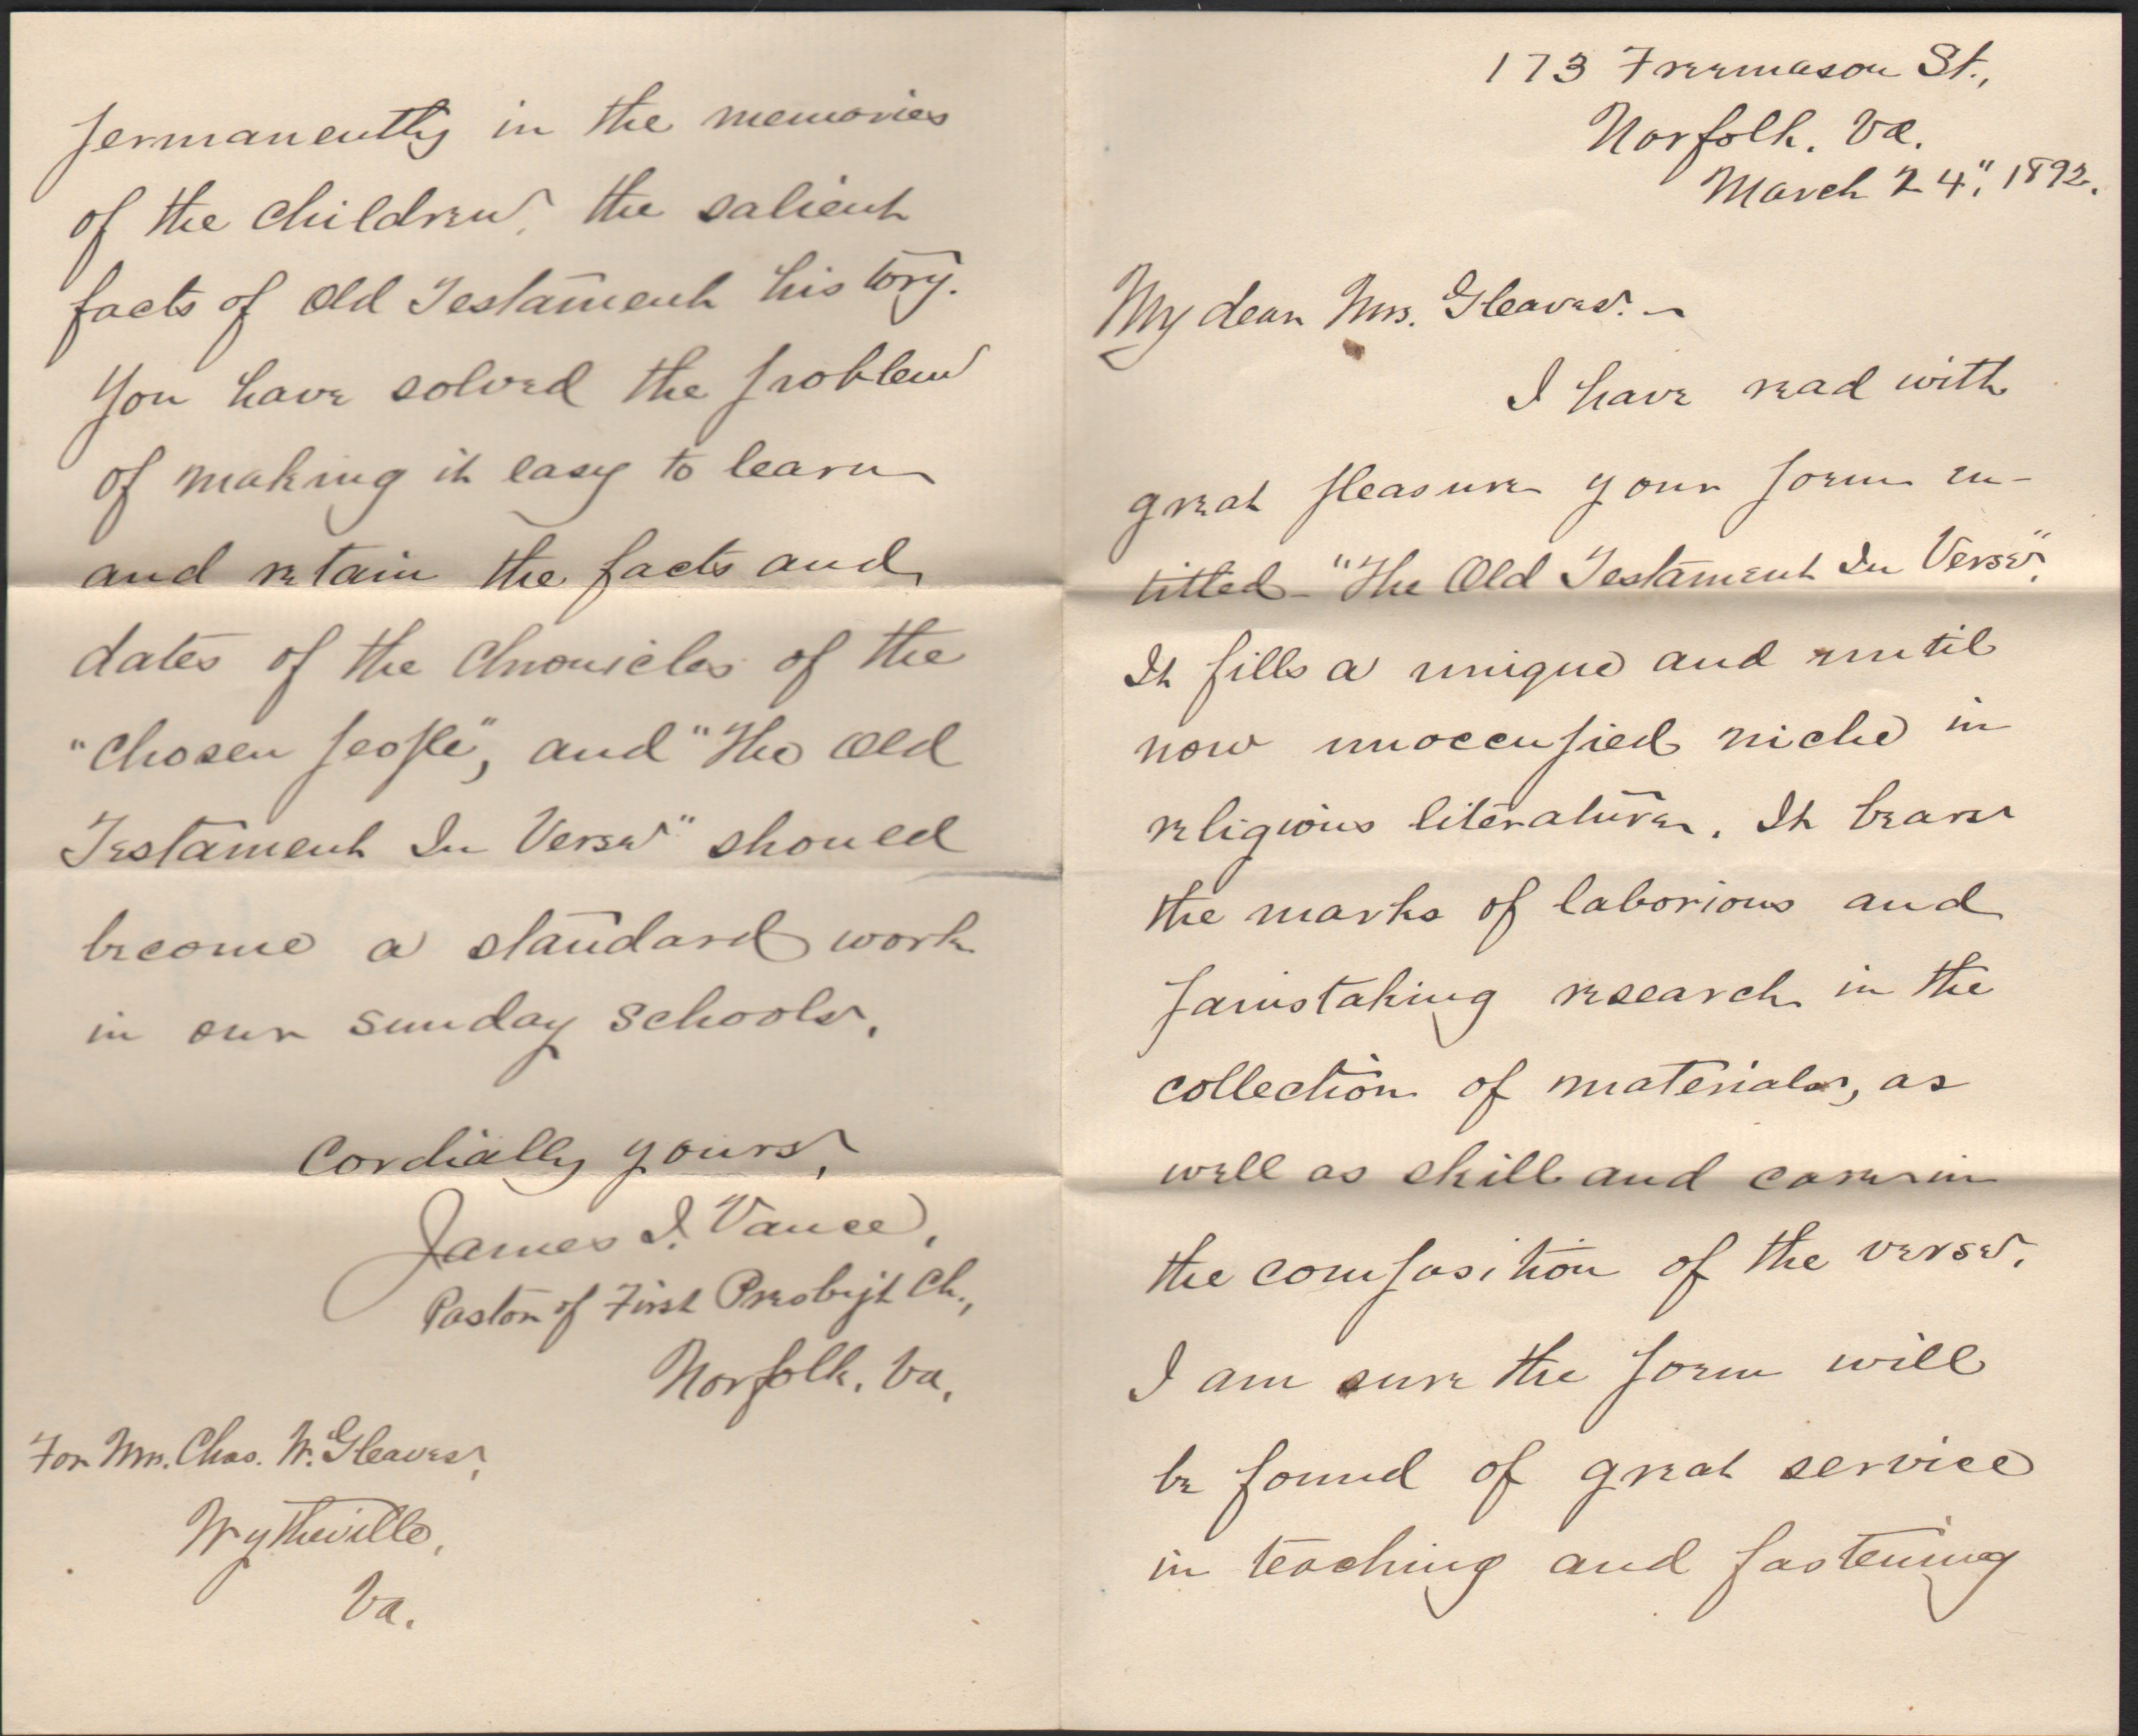 173 Freemason St.,
Norfolk. Va.
March 24", 1892.
My dear Mrs. Gleaves. –
I have read with
great pleasure your poem en-
titled – "The Old Testament In Verse".
It fills a unique and until
now unoccupied niche in
religious literature. It bears
the marks of laborious and
painstaking research in the
collection of materials, as
well as skill and care in
the composition of the verse.
I am sure the poem will
be found of great service
in teaching and fastening
permanently in the memories
of the children, the salient
facts of Old Testament history.
You have solved the problem
of making it easy to learn
and retain the facts and
dates of the Chronicles of the
"Chosen people", and "The Old
Testament In Verse" should
become a standard work
in our Sunday Schools.
Cordially yours,
James I. Vance,
Pastor of First Presbyt Ch.,
Norfolk. Va.
For Mrs. Chas. W. Gleaves,
Wytheville,
Va.